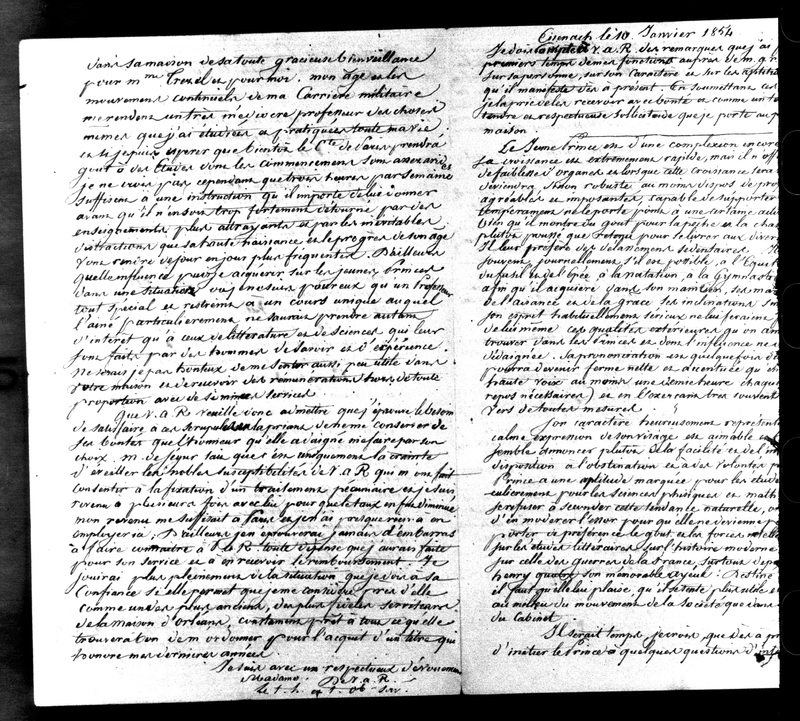 dans sa maison de sa toute gracieuse bienveillance
pour mme Trezel et pour moi. mon âge et les
mouvemens continuels de ma Carrière militaire
me rendent un très médiocre professeur des choses
memes que j'ai etudiées et pratiquées toute ma vie
et si je puis esperer que bientot le Cte de Paris prendra
gout à des Etudes dont les commencemens sont assez arides
je ne crois pas cependant que trois heures par Semaine
suffisent à une instruction qu'il importe de lui donner
avant qu'il n'en soit trop fortement détourné par des
enseignemens plus attrayants et par les inévitables
distractions que sa haute naissance et le progrès de son age
vont rendre de jour en jour plus fréquentes. D'ailleurs
quelle influence puis-je acquerir sur les jeunes Princes
dans une situation où je ne suis pour eux qu'un Professeur
tout spécial et restreint à un cours unique auquel
l'ainé particulièrement ne saurait prendre autant
d'interet qu'à ceux de littérature et de sciences qui leur
sont faits par des hommes de savoir et d'expérience.
Ne serais je pas honteux de me sentir aussi peu utile dans
votre maison et de recevoir des rémunérations hors de toute
proportion avec de si minces services
Que V. a. R. veuille donc admettre que j'éprouve le besoin
de satisfaire à ces scrupules en la priant de me conserver de
ses bontés que l'honneur qu'elle a daigné me faire par son
choix. M. de Segur sait que c'est uniquement la crainte
d'éveiller les nobles susceptibilités de V. a R. qui m'ont fait
consentir à la fixation d'un traitement pécuniaire et je suis
revenu à plusieurs fois avec lui pour que le taux en fut diminué
mon revenu me suffisait à Paris et je n'ai presque rien à en
employer ici, D'ailleurs je n'eprouverai jamais d'embarras
à faire connaitre à S. a. R. toute dépense que j'aurais faite
pour son service et à en recevoir le remboursement. Je
jouirai plus pleinement de la situation que je dois à sa
confiance si elle permet que je me considère près d'elle
comme un des plus anciens, des plus fidèles serviteurs
de la maison d'Orléans, constament prêt à tout ce qu'elle
trouvera bon de m'ordonner pour l'acquit d'un titre qui
honore mes dernieres années.
Je suis avec un respectueux dévouement
Madame, De V. a. R.
le t. h. et t. ob. ser.
Eisenach le 10 Janvier 1854
Je dois compte à V. a. R. des remarques que j'ai p
premiers temps de mes fonctions aupres de m. g. r
sur sa personne, sur son Caractère et sur les aptitu
qu'il manifeste dès à présent. En soumettant ces
je la prie de les recevoir avec bonté et comme un te
tendre et respectueuse sollicitude que je porte au p
maison.
Le Jeune Prince est d'une complexion encore
Sa croissance est extremement rapide, mais il n'off
de faiblesse d'organes et lorsque cette Croissance sera
deviendra, sinon robuste au moins dispos, de pro
agréables et imposantes, capable de supporter
temperament ne le porte point à une certaine activ
bien qu'il montre du gout pour la pêche et la cha
plutot poussé que retenu pour se livrer aux diver
Il leur préfère des délassemens sédentaires. Il
souvent, journellement s'il est possible, à l'Equit
du fusil et de l'épée à la natation, à la Gymnasti
afin qu'il acquière dans son maintien, ses ma
de l'aisance et de la grace. Ses inclinations sur
son esprit habituellement sérieux ne lui feraient p
de lui même ces qualités extérieures qu'on aim
trouver dans les Princes et dont l'influence ne d
dédaignée. Sa prononciation est quelquefois
pourra devenir ferme nette et accentuée qu'en
haute voix au moins une demie heure chaque
repos nécessaires) et en l'exercant très souvent
vers de toutes mesures.
Son caractère heureusement représenté
calme expression de son visage est aimable
semble annoncer plutot de la facilité et de l'in
disposition à l'obstination et à des volontés p
Prince a une aptitude marquée pour les étude
culierement pour les sciences physiques et math
se refuser à seconder cette tendance naturelle, on
d'en modérer l'essor pour qu'elle ne devienne p
porter de préférence le gout et les forces intelle
sur les etudes littéraires sur l'histoire moderne
sur celle des guerres de la France, surtout depu
henry quatre son mémorable ayeul. Destiné
il faut qu'elle lui plaise, qu'il sente plus utile et
au milieu du mouvement de la société que dans
du Cabinet
Il serait temps, je crois, que dès a pr
d'initier le Prince à quelques questions d'inté